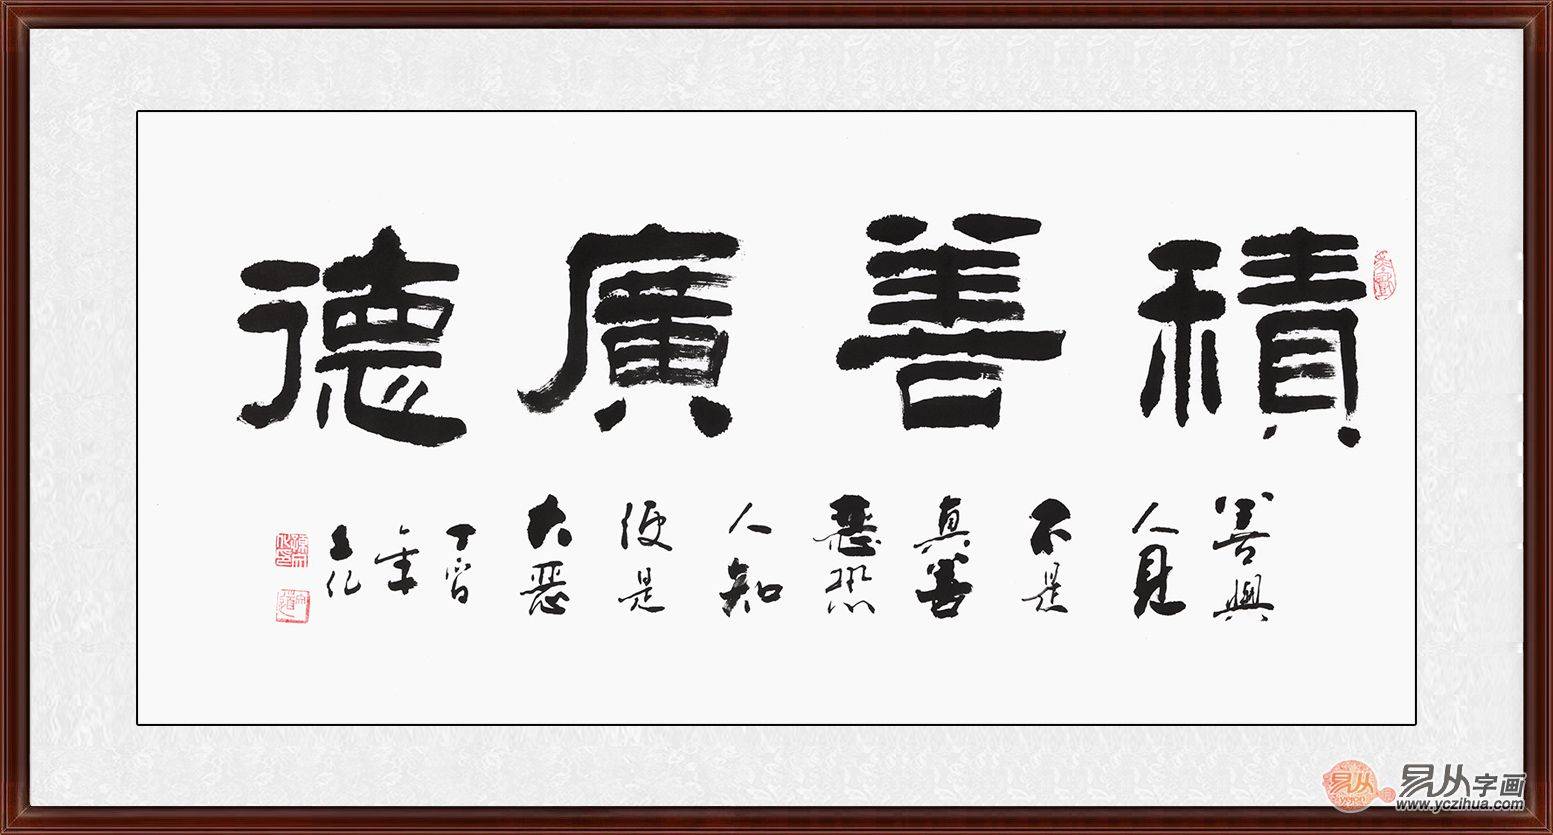 積善廣德
善與
人見
不是
真善
惡恐
人知
便是
大惡
丁酉
年
易从
易从字画
www.yczihua.com